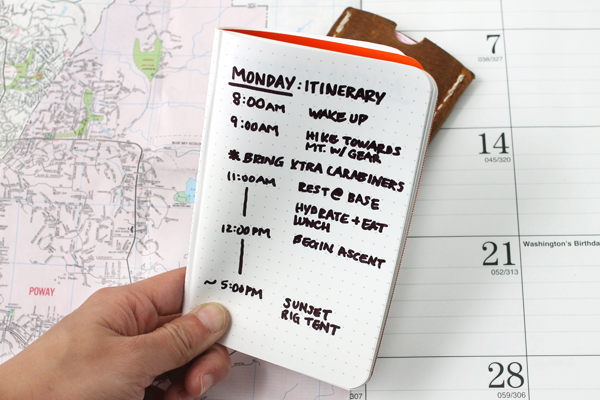 MONDAY: ITINERARY
8:00AM WAKE UP
9:00AM HIKE TOWARDS
MT. W/ GEAR
* BRING XTRA CARABINERS
11:00AM REST @ BASE
HYDRATE + EAT
LUNCH
12:00PM BEGIN ASCENT
~ 5:00PM SUNSET
RIG TENT
POWAY
7
038/327
14
045/320
21
052/313
Washington's Birthda
28
059/306
307